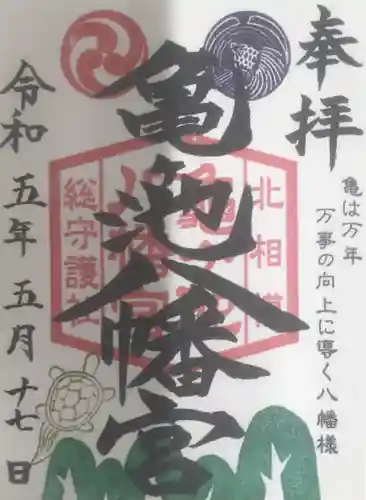 奉拝
亀は万年
万事の向上に導く八幡様
亀池八幡宮
北相模
総守護社
令和五年五月十七日